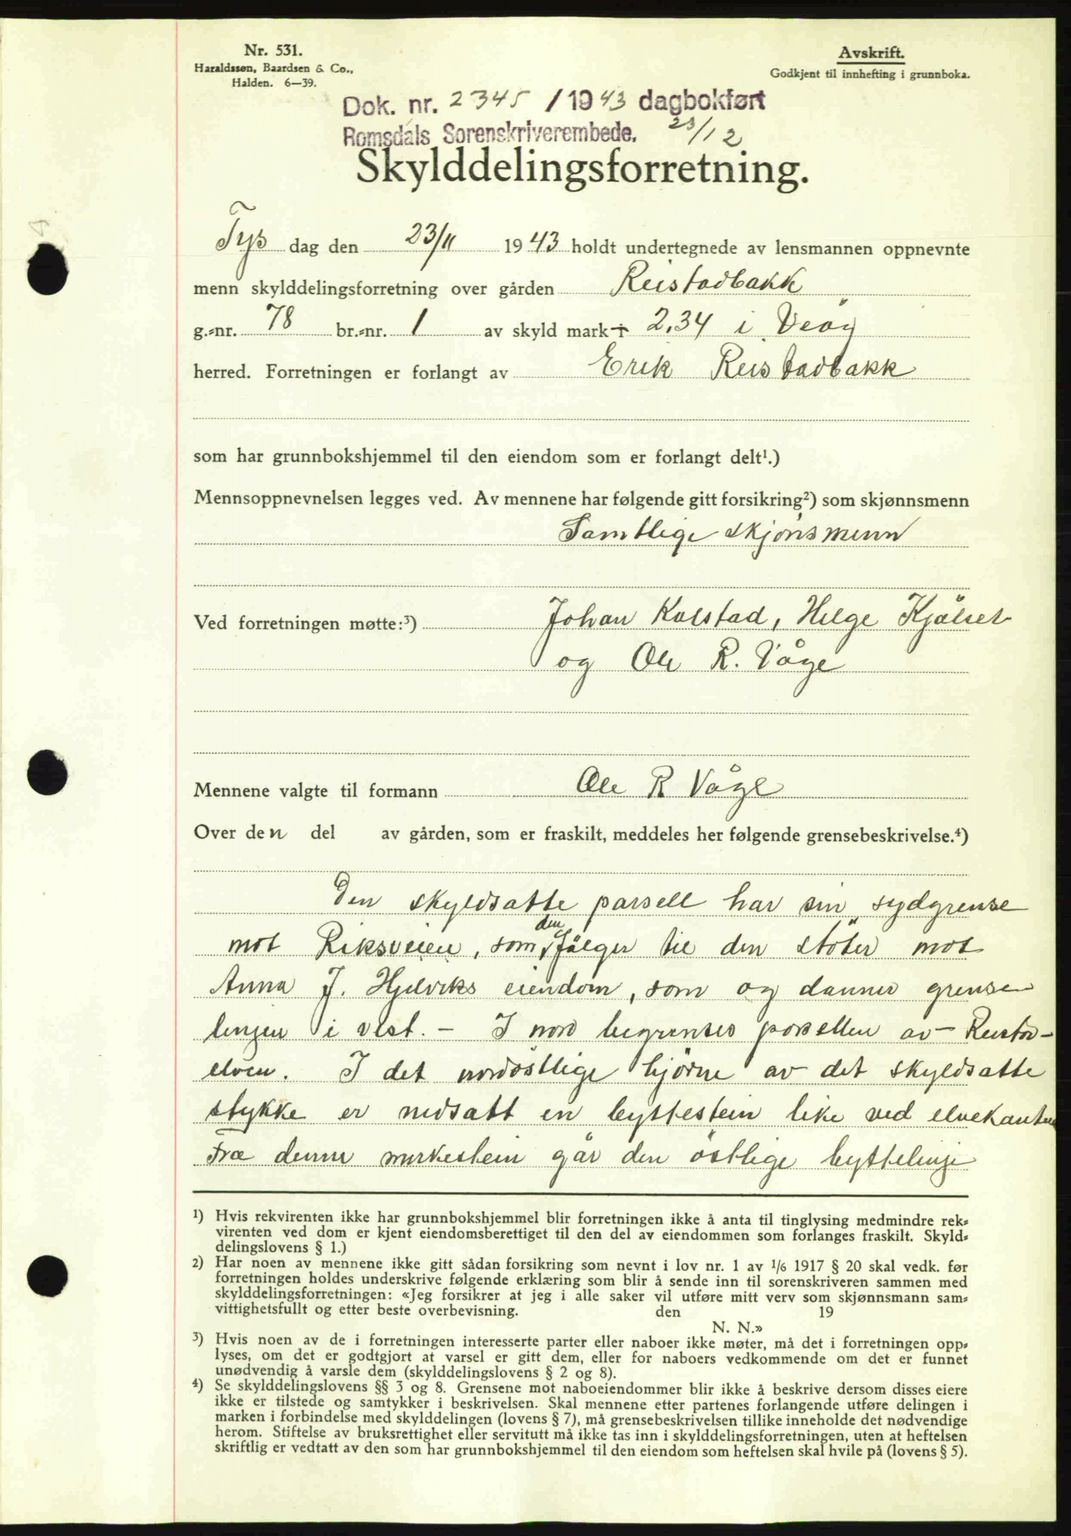 Nr. 531.
Haraldssøn, Baardsen & Co.,
Halden. 6—39.
Avskrift.
Godkjent til innhefting i grunnboka.
Dok. nr. 2345 / 1943 dagbokført
Romsdals Sorenskriverembede. 23/12
Skylddelingsforretning.
Tys dag den 23/11 1943 holdt undertegnede av lensmannen oppnevnte
menn skylddelingsforretning over gården Reistadbakk
g.-nr. 78 br.-nr. 1 av skyld mark 2,34 i Veøy
herred. Forretningen er forlangt av Erik Reistadbakk
som har grunnbokshjemmel til den eiendom som er forlangt delt¹.)
Mennsoppnevnelsen legges ved. Av mennene har følgende gitt forsikring²) som skjønnsmenn
Samtlige skjønsmenn
Ved forretningen møtte:³) Johan Kolstad, Helge Kjølset
og Ole R. Våge
Mennene valgte til formann Ole R Våge
Over den del av gården, som er fraskilt, meddeles her følgende grensebeskrivelse.⁴)
Den skyldsatte parsell har sin sydgrense
mot Riksveien, som den følger til den støter mot
Anna J. Hjelviks eiendom, som og danner grense-
linjen i vest. – I nord begrenses parsellen av Reistad-
elven. I det nordøstlige hjørne av det skyldsatte
stykke er nedsatt en byttestein like ved elvekanten
Fra denne merkestein går den østlige byttelinje
¹) Hvis rekvirenten ikke har grunnbokshjemmel blir forretningen ikke å anta til tinglysing medmindre rek-
virenten ved dom er kjent eiendomsberettiget til den del av eiendommen som forlanges fraskilt. Skyld-
delingslovens § 1.)
²) Har noen av mennene ikke gitt sådan forsikring som nevnt i lov nr. 1 av 1/6 1917 § 20 skal vedk. før
forretningen holdes underskrive følgende erklæring som blir å sende inn til sorenskriveren sammen med
skylddelingsforretningen: «Jeg forsikrer at jeg i alle saker vil utføre mitt verv som skjønnsmann sam-
vittighetsfullt og etter beste overbevisning. den 19
N. N.»
³) Hvis noen av de i forretningen interesserte parter eller naboer ikke møter, må det i forretningen opp-
lyses, om det er godtgjort at varsel er gitt dem, eller for naboers vedkommende om det er funnet
unødvendig å varsle dem (skylddelingslovens § 2 og 8).
⁴) Se skylddelingslovens §§ 3 og 8. Grensene mot naboeiendommer blir ikke å beskrive dersom disses eiere
ikke er tilstede og samtykker i beskrivelsen. Skal mennene etter partenes forlangende utføre delingen i
marken i forbindelse med skylddelingen (lovens § 7), må grensebeskrivelsen tillike inneholde det nødvendige
herom. Stiftelse av bruksrettighet eller servitutt må ikke tas inn i skylddelingsforretningen, uten at heftelsen
skriftlig er vedtatt av den som har grunnbokshjemmel til den eiendom som heftelsen skal hvile på (lovens § 5).